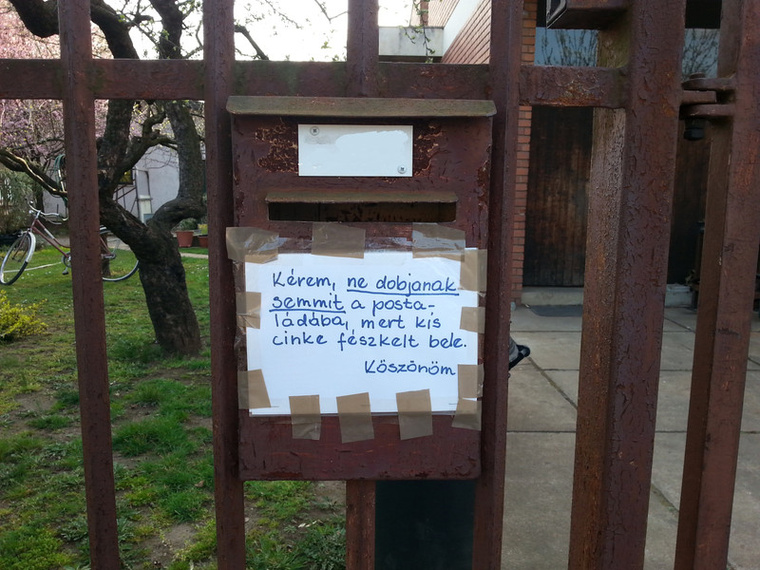 Kérem, ne dobjanak
semmit a posta-
ládába, mert kis
cinke fészkelt bele.
Köszönöm